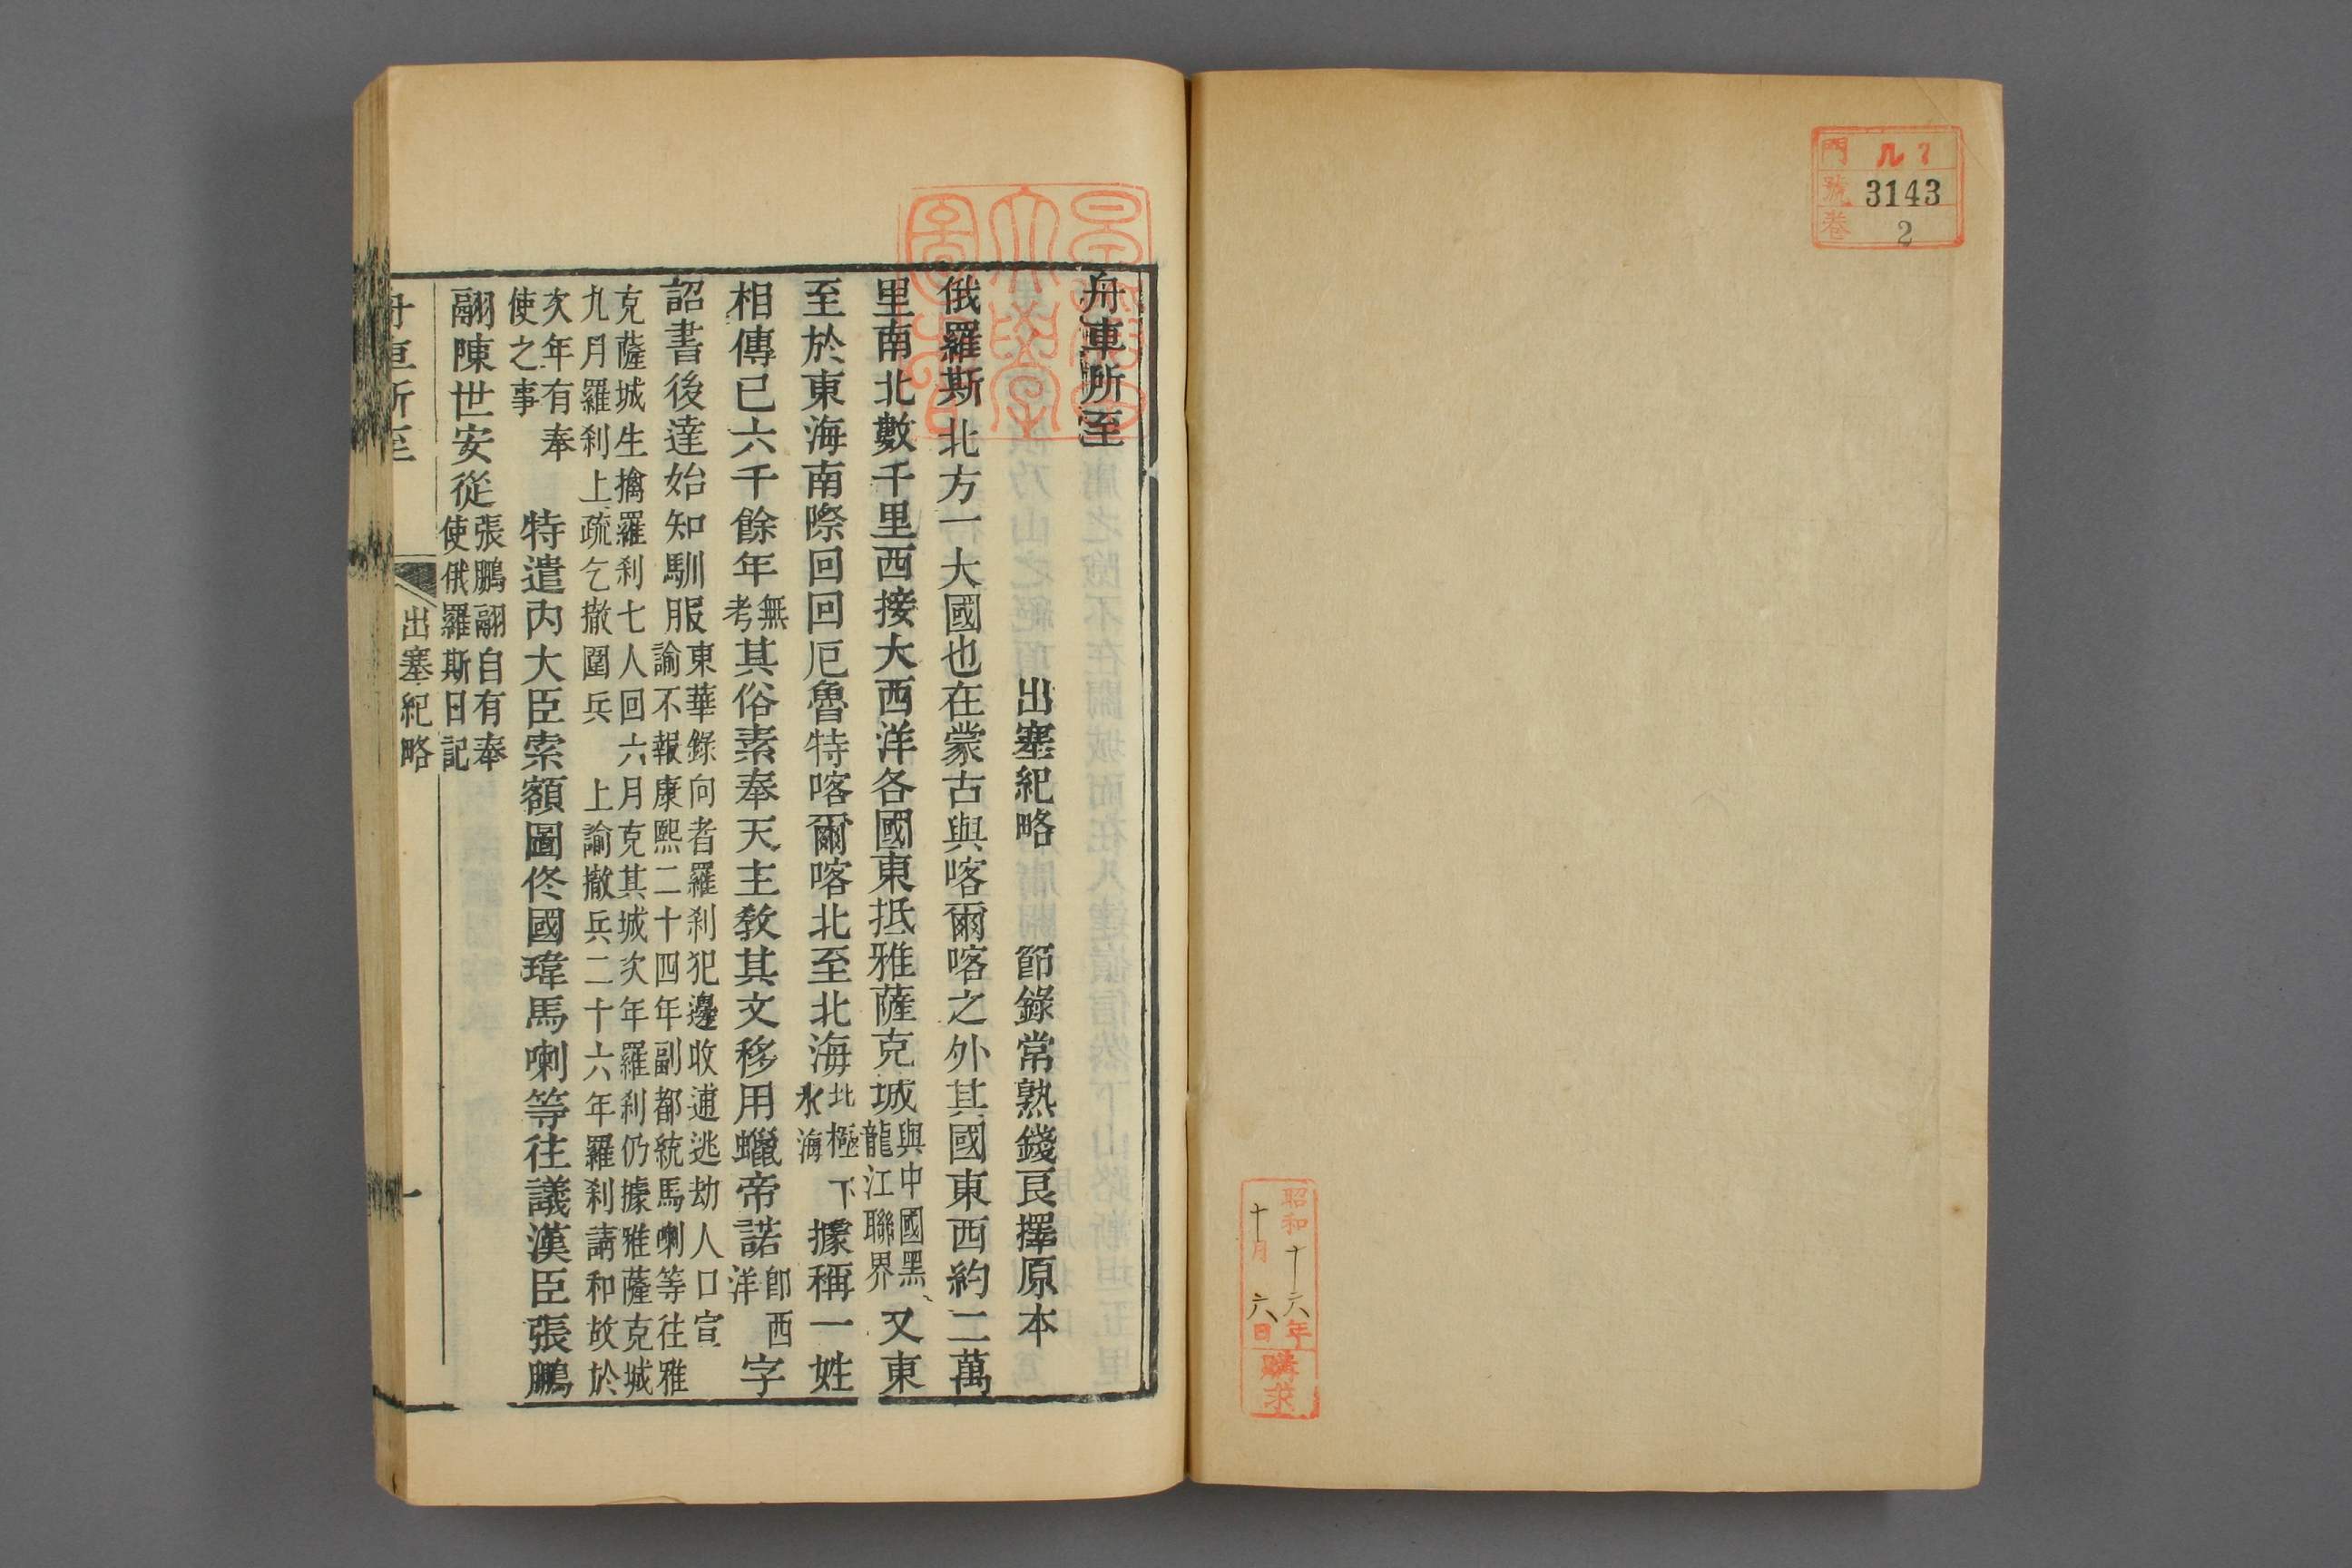 門 九 7
號 3143
卷 2
昭和十六年
十月六日
購求
舟車所至
出塞紀略 節錄常熟錢良擇原本
俄羅斯北方一大國也在蒙古與喀爾喀之外其國東西約二萬
里南北數千里西接大西洋各國東抵雅薩克城
與中國黑
龍江聯界
又東
至於東海南際回回厄魯特喀爾喀北至北海
北極下
氷海
據稱一姓
相傳已六千餘年
無
考
其俗素奉天主教其文移用蠟帝諾
卽西
洋
字
詔書後達始知馴服
東華錄向者羅刹犯邊收逋逃劫人口宣
諭不報康熙二十四年副都統馬喇等往雅
克薩城生擒羅刹七人回六月克其城次年羅刹仍據雅薩克城
九月羅刹上疏乞撤圍兵 上諭撤兵二十六年羅刹請和故於
次年有奉
使之事
特遣內大臣索額圖佟國瑋馬喇等往議漢臣張鵬
翮陳世安從
張鵬翮自有奉
使俄羅斯日記
舟車所至 出塞紀略 一
早稻田
大學
圖書